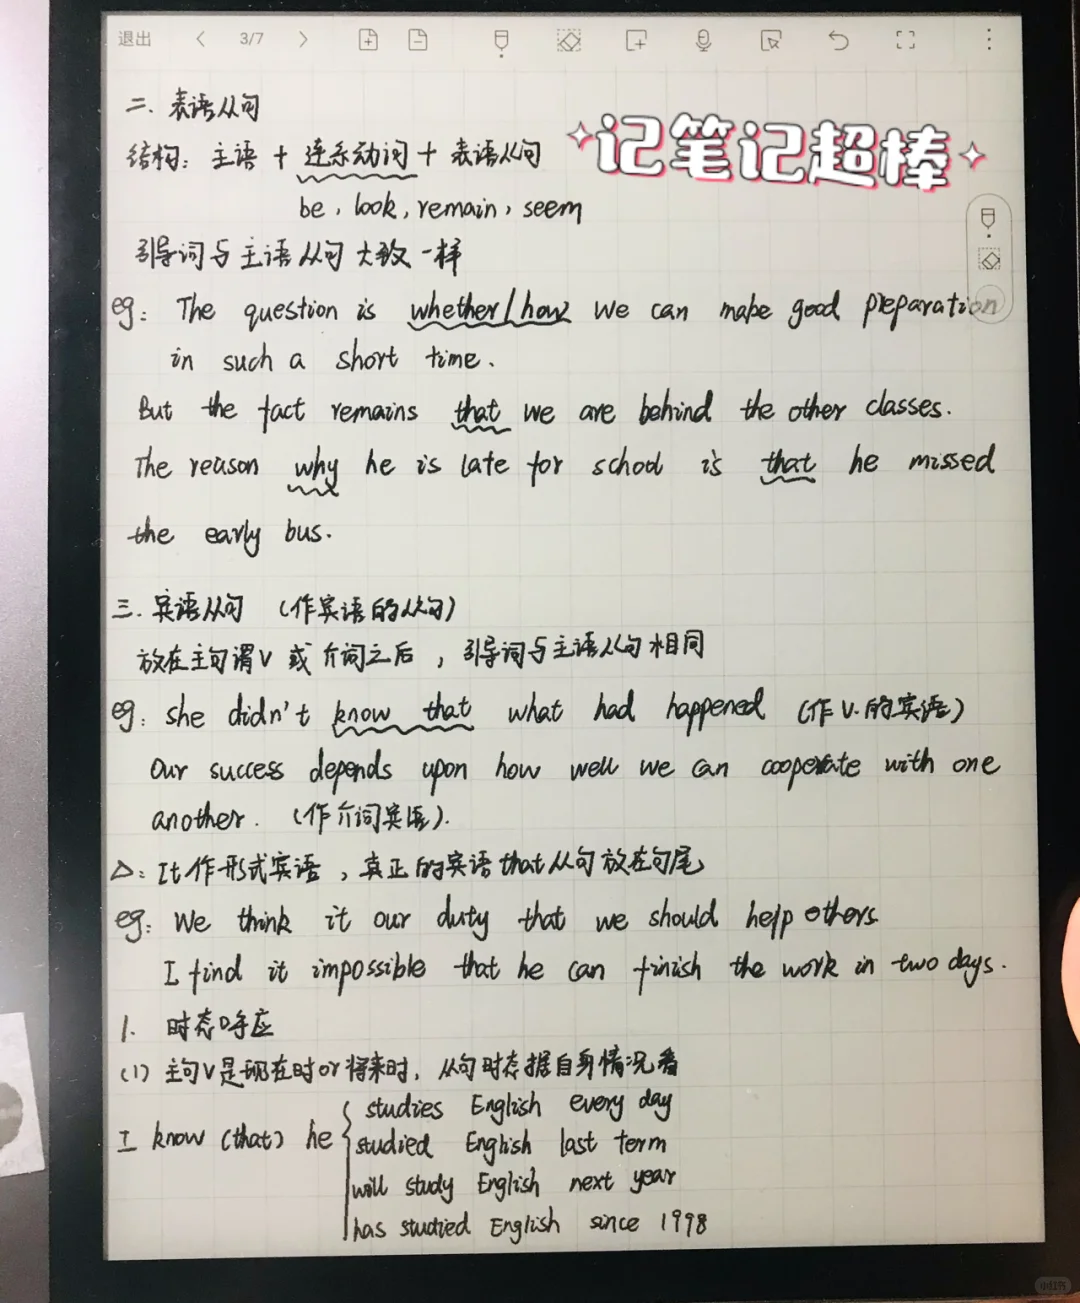 退出 3/7
二. 表语从句
记笔记超棒
结构: 主语 + 连系动词 + 表语从句
be, look, remain, seem
引导词与主语从句大致一样
eg: The question is whether/how we can make good preparation
in such a short time.
But the fact remains that we are behind the other classes.
The reason why he is late for school is that he missed
the early bus.
三. 宾语从句 (作宾语的从句)
放在主句谓V或介词之后, 引导词与主语从句相同
eg: she didn't know that what had happened (作V.的宾语)
Our success depends upon how well we can cooperate with one
another. (作介词宾语).
△: It作形式宾语, 真正的宾语that从句放在句尾
eg: We think it our duty that we should help others
I find it impossible that he can finish the work in two days.
1. 时态呼应
(1) 主句V是现在时or将来时, 从句时态据自身情况看
studies English every day
I know (that) he studied English last term
will study English next year
has studied English since 1998
小红书